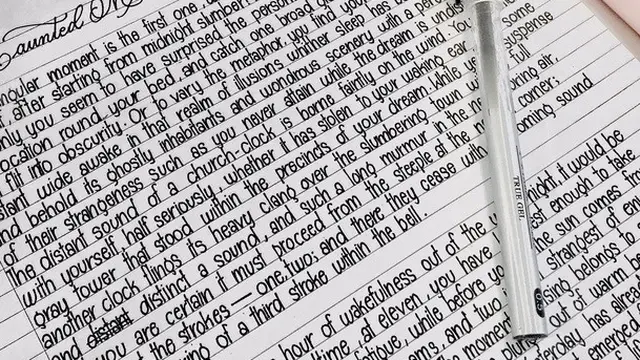 aunted M
ngular moment is the first one,
, after starting from midnight slumber
nly you seem to have surprised the person
ocation round your bed, and catch one broad g
flit into obscurity. Or to vary the metaphor, you find your
stant wide awake in that realm of illusions, whither sleep
and behold its ghostly inhabitants and wondrous scenery with a perc
of their strangeness such as you never attain while the dream is
The distant sound of a church-clock is borne faintly on the wind. You
with yourself half seriously, whether it has stolen to your waking ear some
gray tower that stood within the precincts of your dream. While suspense
another clock flings its heavy clang over the slumbering town full
and distant distinct a sound, and such a long murmur in the ring air,
you are certain it must proceed from the steeple at the corner;
the strokes — one, two; and there they cease with ooming sound
ing of a third stroke within the bell.
hour of wakefulness out of the night, it would be
time, at eleven, you have est enough to take
tigue, while before yo the sun comes
ams, and two strangest of
moment sing belongs to
out of warm
terday has already
emerged
TRUE GEL